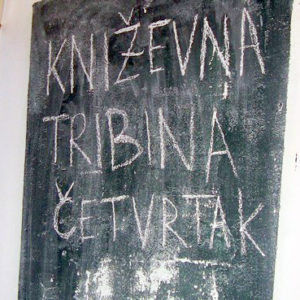 KNIŽEVNA
TRIBINA
ČETVRTAK